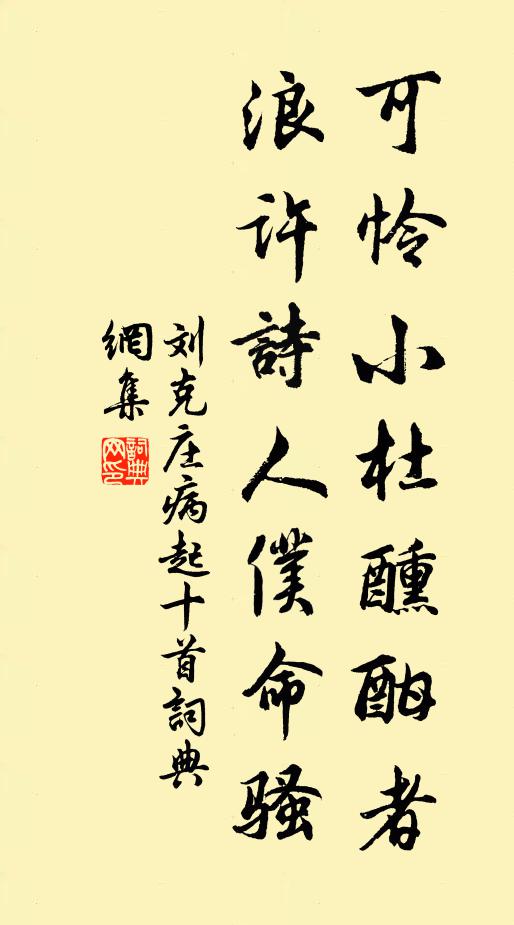 可怜小杜醺酣者
浪许詩人僕命骚
刘克庄病起十首詞典
網集
詞典
网印